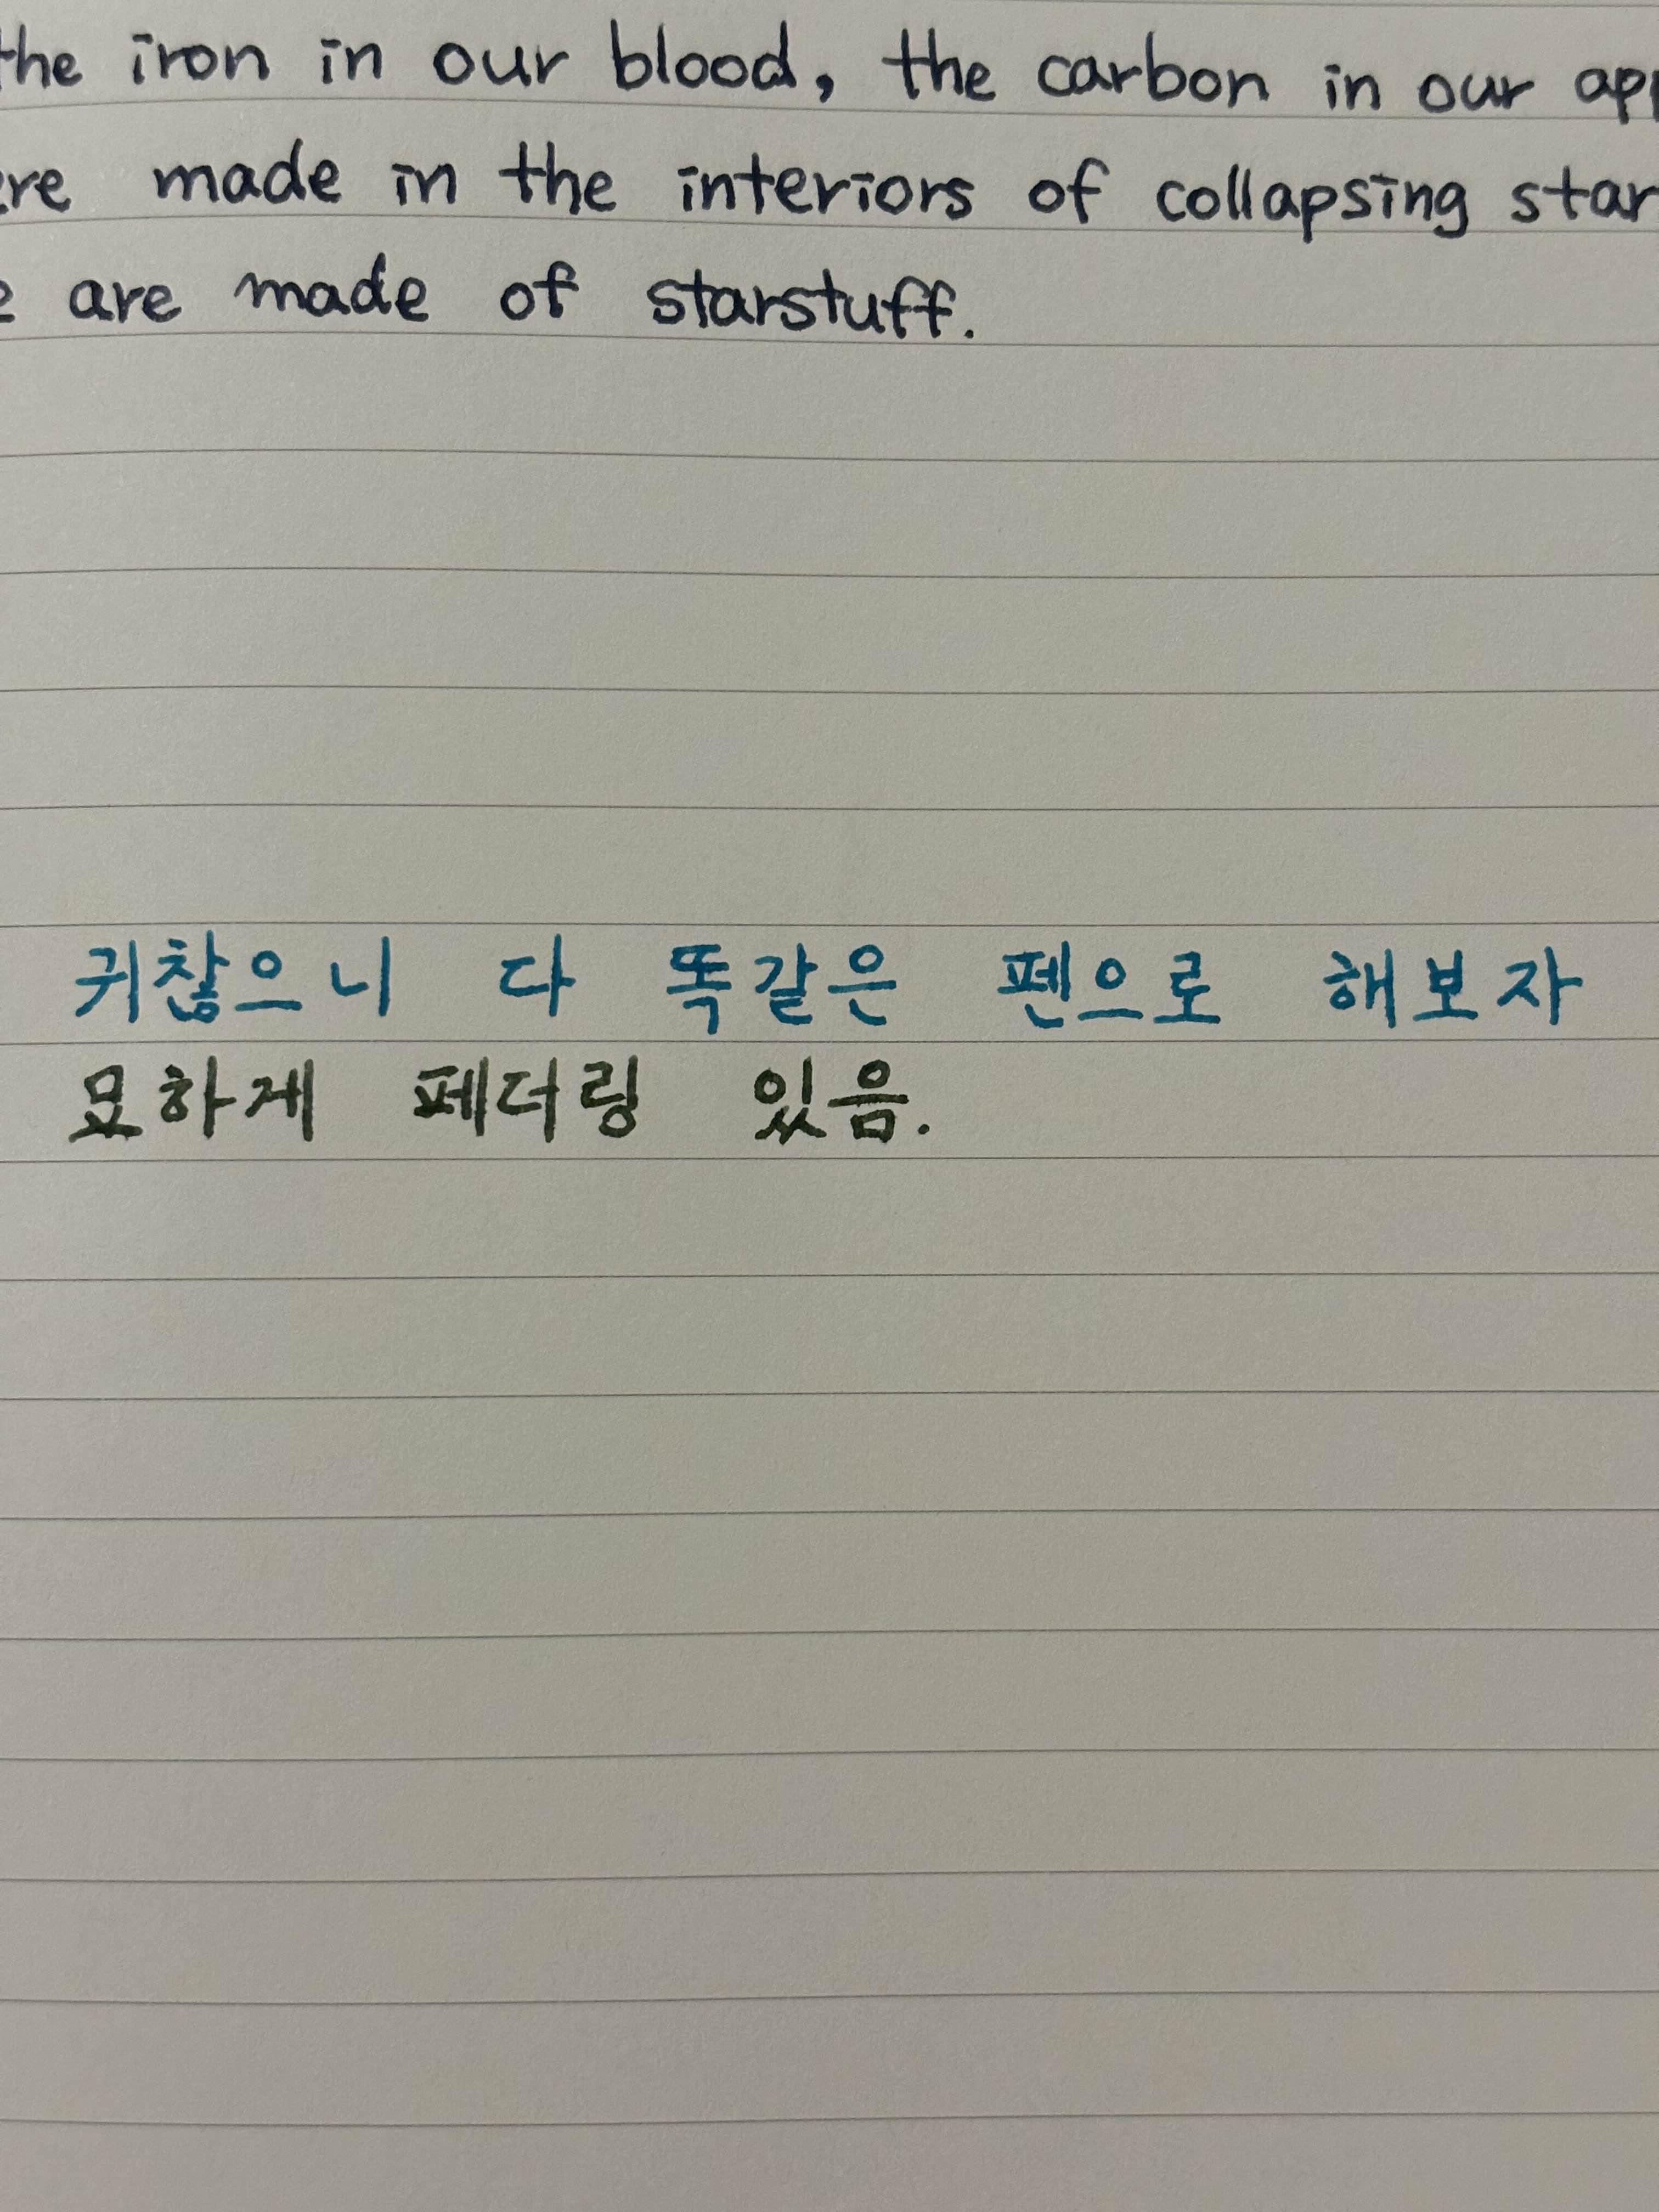 the iron in our blood, the carbon in our
made in the interiors of collapsing
are made of starstuff.
귀찮으니 다 똑같은 펜으로 해보자
묘하게 페더링 있음.